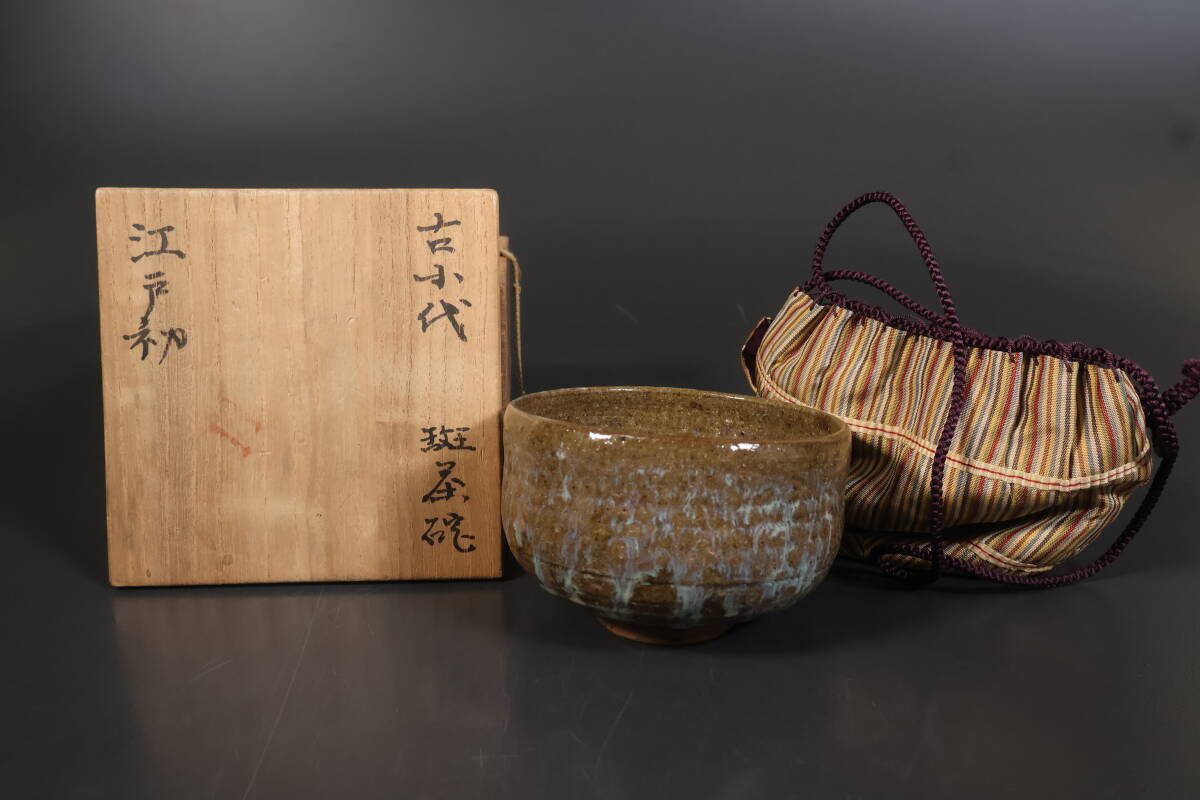 古小代 斑茶碗
江戸初